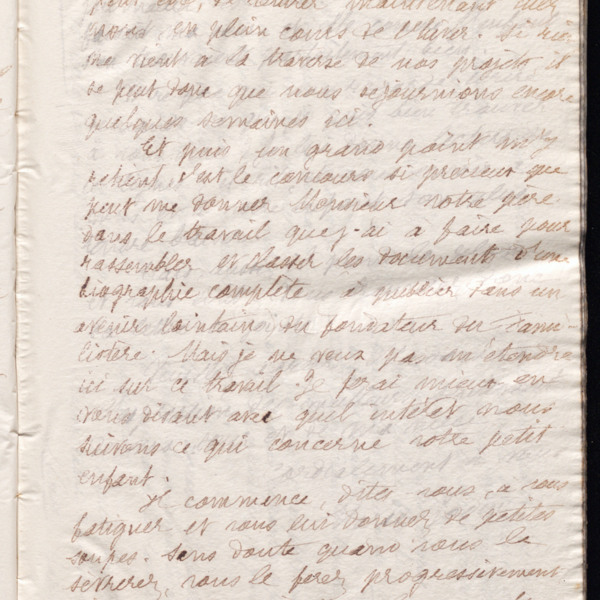 maintenant
en plein cours de l'hiver. Si rien
ne vient à la traverse de nos projets il
se peut donc que nous séjournions encore
quelques semaines ici.
Et puis un grand point m'y
retient, c'est le concours si précieux que
peut me donner Monsieur notre père
dans le travail que j'ai à faire pour
rassembler et classer les documents d'une
biographie complète à publier dans un
avenir lointain du fondateur du Fami-
listère. Mais je ne veux pas m'étendre
ici sur ce travail. Je ferai mieux en
vous disant avec quel intérêt nous
suivons ce qui concerne votre petit
enfant.
Il commence, dites vous, à vous
fatiguer et vous lui donnez de petites
soupes. Sans doute quand vous le
sevrerez, vous le ferez progressivement